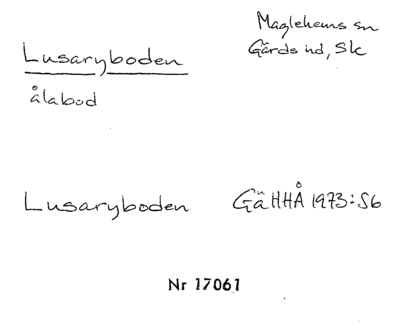 Lusaryboden
Maglehems sn
Gärds hd, Sk
ålabod
Lusaryboden GäHHÅ 1973:56
Nr 17061